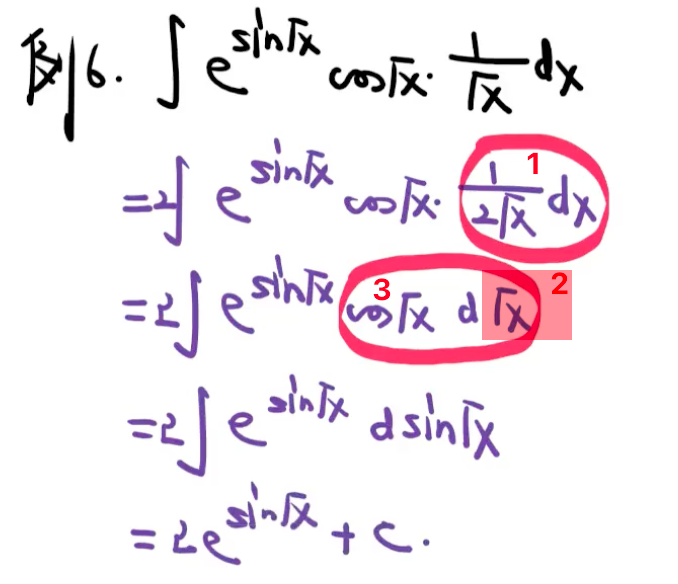 例6. ∫ e^{sin√x} cos√x · 1/√x dx
= 2∫ e^{sin√x} cos√x · 1/(2√x) dx 1
= 2∫ e^{sin√x} cos√x d√x 3 2
= 2∫ e^{sin√x} d sin√x
= 2e^{sin√x} + C.